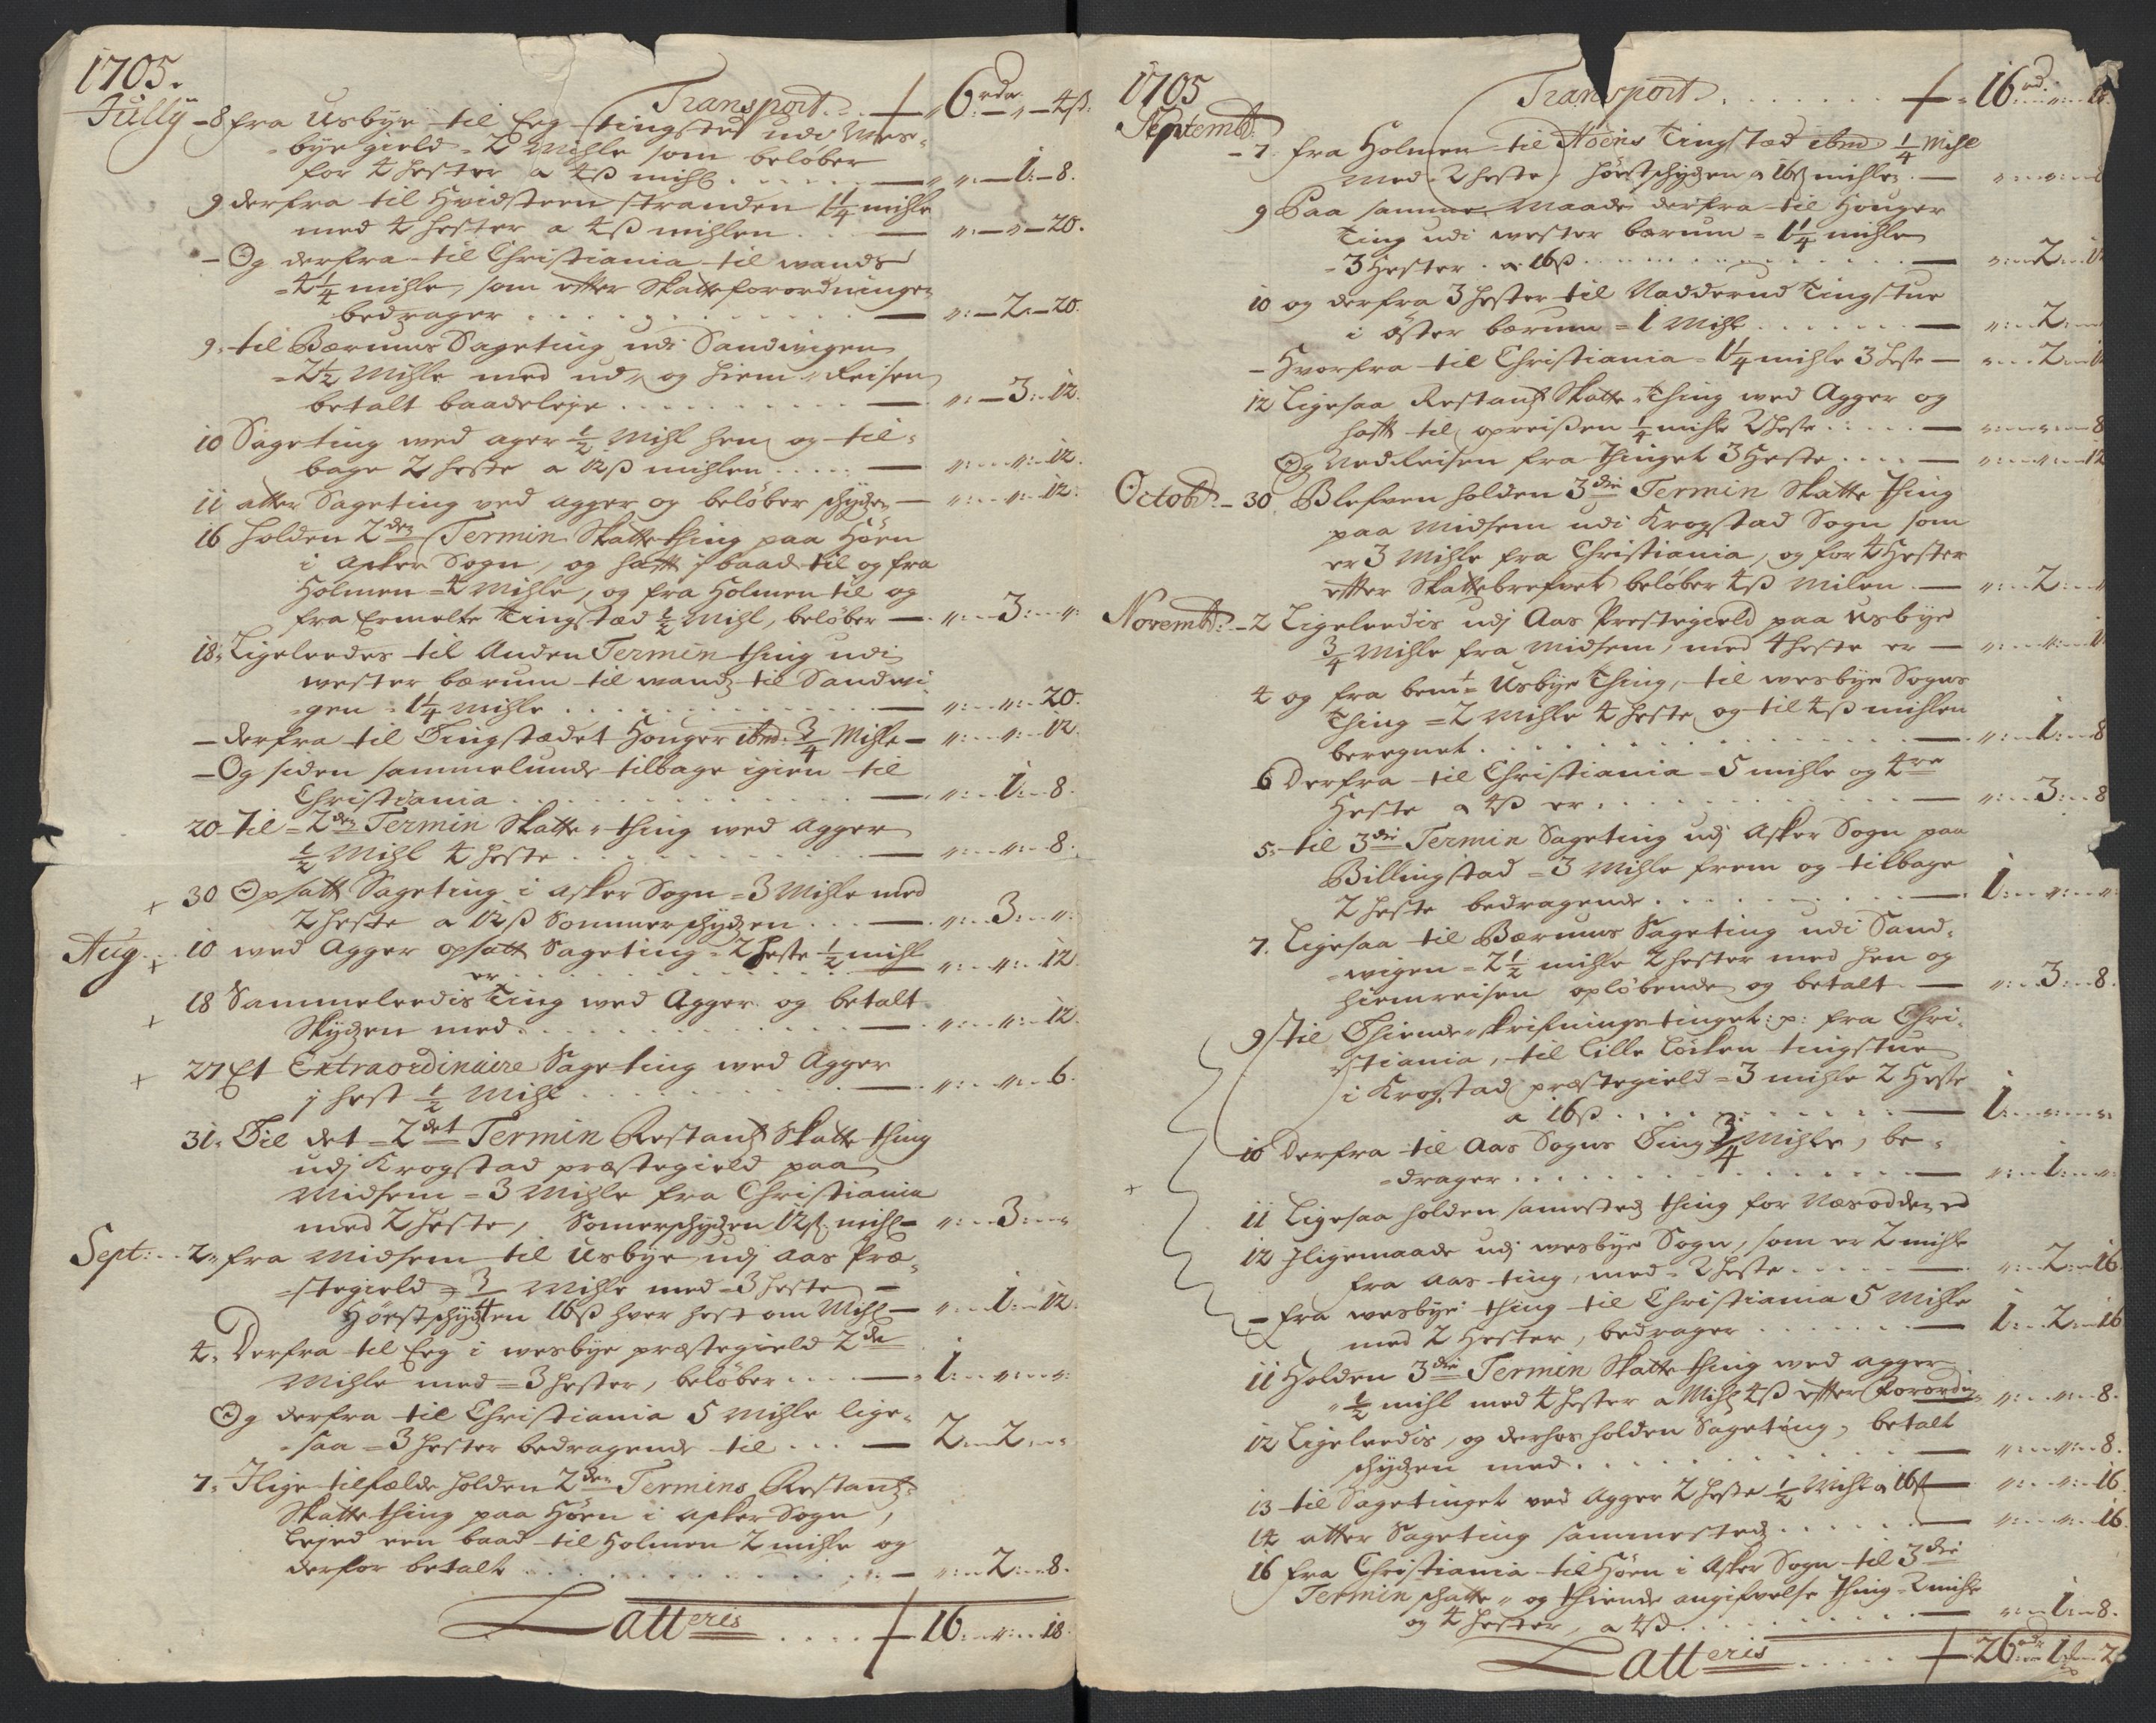 1705.
Transport . . . 6 rdr. – „ – 4ß.
Jully – 8 fra Usbÿe til Eeg tingsted udi Wes-
bÿe gield = 2 Mihle som beløber
for 4 hester a 4ß mihl . . . . . — „: – 1: – 8.
9 derfra til Hvidsteen stranden 1 1/4 mihle
med 4 hester a 4ß mihlen . . . — „: – „ – 20.
– Og derfra til Christiania til wands
= 4 1/4 mihle, som efter Skatteforordningen
bedrager . . . . . . . . . — „: – 2. – 20.
9. til Bærums Sageting udi Sandwigen
= 2 1/2 Mihle med ud „ og hiem „ Reisen
betalt baadeleÿe . . . . . . . . — „: – 3: – 12.
10 Sageting wed ager 1/2 Mihl hen og til-
bage 2 heste a 12ß mihlen . . . . . — „: . . „: . . 12.
11 atter Sageting ved agger og beløber schÿdzen — „: . . „: . . 12.
16 holden 2den Termin Skattething paa Höen
i Asker Sogn, og hafft baad til og fra
Holmen = 4 Mihle, og fra Holmen til og
fra Ermelte tingstæd 1/2 Mihl, beløber — „: . . 3: . . „:
18: Ligeleedes til Anden Termin thing udi
wester bærum til wandz til Sandwi-
gen = 1 1/4 mihle . . . . . . . . . . — „: . . „: . . 20.
– derfra til Tingstædet Houger ibm. 3/4 Mihle – „: . . „: . . 12.
– Og siden sammelunde tilbage igien til
Christiania . . . . . . . . . . . — „: . . 1: . . 8.
20 Til = 2den Termin Skatte „ thing wed Agger
1/2 Mihl 4 heste . . . . . . . . . . — „: . . „: . . 8.
+ 30 Opsatt Sageting i Asker Sogn = 3 Mihle med
2 heste a 12ß Sommerschÿdzen . . . — „: . . 3: . . „:
Aug. . . + 10 wed Agger opsatt Sageting = 2 heste 1/2 mihl
er . . . . . . . . . . . . — „: . . „: . . 12
+ 18 Sammeleedis Ting wed Agger og betalt
Skÿdzen med . . . . . . . . . . . — „: . . „: . . 12.
+ 27 Et Extraordinaire Sageting wed Agger
1 hest 1/2 Mihl . . . . . . . . . — „: . . „: . . 6.
31. Til det = 2det Termin Restantz Skatte thing
udj Krogstad præstegield paa
Midsem = 3 Mihle fra Christiania
med 2 heste, Somerschÿdzen 12ß mihl – „: . . 3: . . „:
Sept: . . 2. fra Midsem til Usbÿe udj Aas Præ-
stegield = 3/4 Mihle med = 3 heste –
Höestschÿdzen 16ß hver hest om Mihl — „: . . 1: . . 12.
4. Derfra til Eeg i wesbÿe præstegield 2de
Mihle med = 3 hester, beløber . . . . — 1: . . „: . . „:
Og derfra til Christiania 5 Mihle lige-
saa = 3 hester bedragende til . . . — 2: . . 2: . . „:
7. Jlige tilfælde holden 2den Termins Restantz
Skatte thing paa Höen i Asker Sogn,
Leÿed een baad til Holmen 2 mihle og
derfor betalt . . . . . . . . . . . — „: . . 2: . . 8.
Latteris . . . . 16: . . „: . . 18.
1705
Transport . . . . . . . 16 rd: . . „: . . 18.
Septembr: – 7. fra Holmen til Höens Tingstæd ibm 1/4 Mihl
med 2 heste, höestschÿdzen a 16ß mihlen . — „: . . „: . .
9 Paa samme Maade derfra til Houger
Ting udi wester bærum = 1 1/4 mihle
= 3 Hester . a 16ß . . . . . . . . . . — „: . . 2: . .
10 og derfra 3 hester til Nadderud Tingstue
i öster bærum = 1 Mihl . . . . . . . — „: . . 2: . .
– Hvorfra til Christiania = 1 1/4 mihle 3 heste — „: . . 2: . .
12 Ligesaa Restantz Skatte „ Thing wed Agger og
hafft til opreisen 1/4 mihle 2 heste . . . . . — „: . . „: . . 8
Og Nedreisen fra Thinget 3 Heste . . . . — „: . . „: . . 12
Octobr: – 30 Blefven holden 3die Termin Skatte Thing
paa Midsem udi Krogstad Sogn som
er 3 Mihle fra Christiania, og for 4 Hester
efter Skattebrefvet beløber 4ß Milen . — „: . . 2: . . „
Novembr: – 2 Ligeleedis udj Aas Prestegield paa Usbÿe
3/4 Mihle fra Midsem, med 4 heste er — „: . . „: . .
4 og fra bemte Usbÿe Thing, til wesbÿe Sogns
Thing = 2 Mihle 4 heste og til 4ß mihlen
beregnet . . . . . . . . . . . . . . — „: . . 1: . . 8
6 Derfra til Christiania = 5 mihle og 4re
Heste a 4ß er . . . . . . . . . . . — „: . . 3: . . 8
5. til 3die Termin Sageting udj Asker Sogn paa
Billingstad = 3 Mihle frem og tilbage
2 heste bedragende . . . . . . . . . — 1: . . „: . . „:
7. Ligesaa til Bærums Sageting udi Sand-
wigen = 2 1/2 mihle 2 hester med hen og
hiemreisen opløbende og betalt — „: . . 3: . . 8.
9 til Thiende „ skrifnings tinget: p: fra Chri-
stiania, til Lille Löiken tingstue
i Krogstad præstegield = 3 mihle 2 Heste
a 16ß . . . . . . . . . . . . . — 1: . . „: . . „:
10 Derfra til Aas Sogns Ting 3/4 Mihle, be-
drager . . . . . . . . . . . . . . — „: . . 1: . . „:
+ 11 Ligesaa holden samestedz thing for Næsodden
12 Jligemaade udj wesbÿe Sogn, som er 2 mihle
fra Aas ting, med = 2 heste . . . . . — „: . . 2: . . 16.
– fra wesbÿe thing til Christiania 5 Mihle
med 2 Hester, bedrager . . . . . . . — 1: . . 2: . . 16
11 Holden 3die Termin Skatte thing wed agger
„ 1/2 mihl med 4 hester a Mihl 4ß efter forordn: „: . . „: . . 8.
12 Ligeleedis, og derhos holden Sageting, betalt
schÿdzen med . . . . . . . . . . . — „: . . „: . . 8.
13 til Sagetinget ved Agger 2 heste 1/2 Mihl a 16ß — „: . . „: . . 16.
14 atter Sageting sammestedz . . . . . . — „: . . „: . . 16.
16 fra Christiania til Höen i Asker Sogn til 3die
Termin schatte „ og thiende angifvelse thing = 2 mihle
og 4 hester, a 4ß . . . . . . . . . — „: . . 1: . . 8.
Latteris . . . . . 26 rdr: . . 1: . . 2